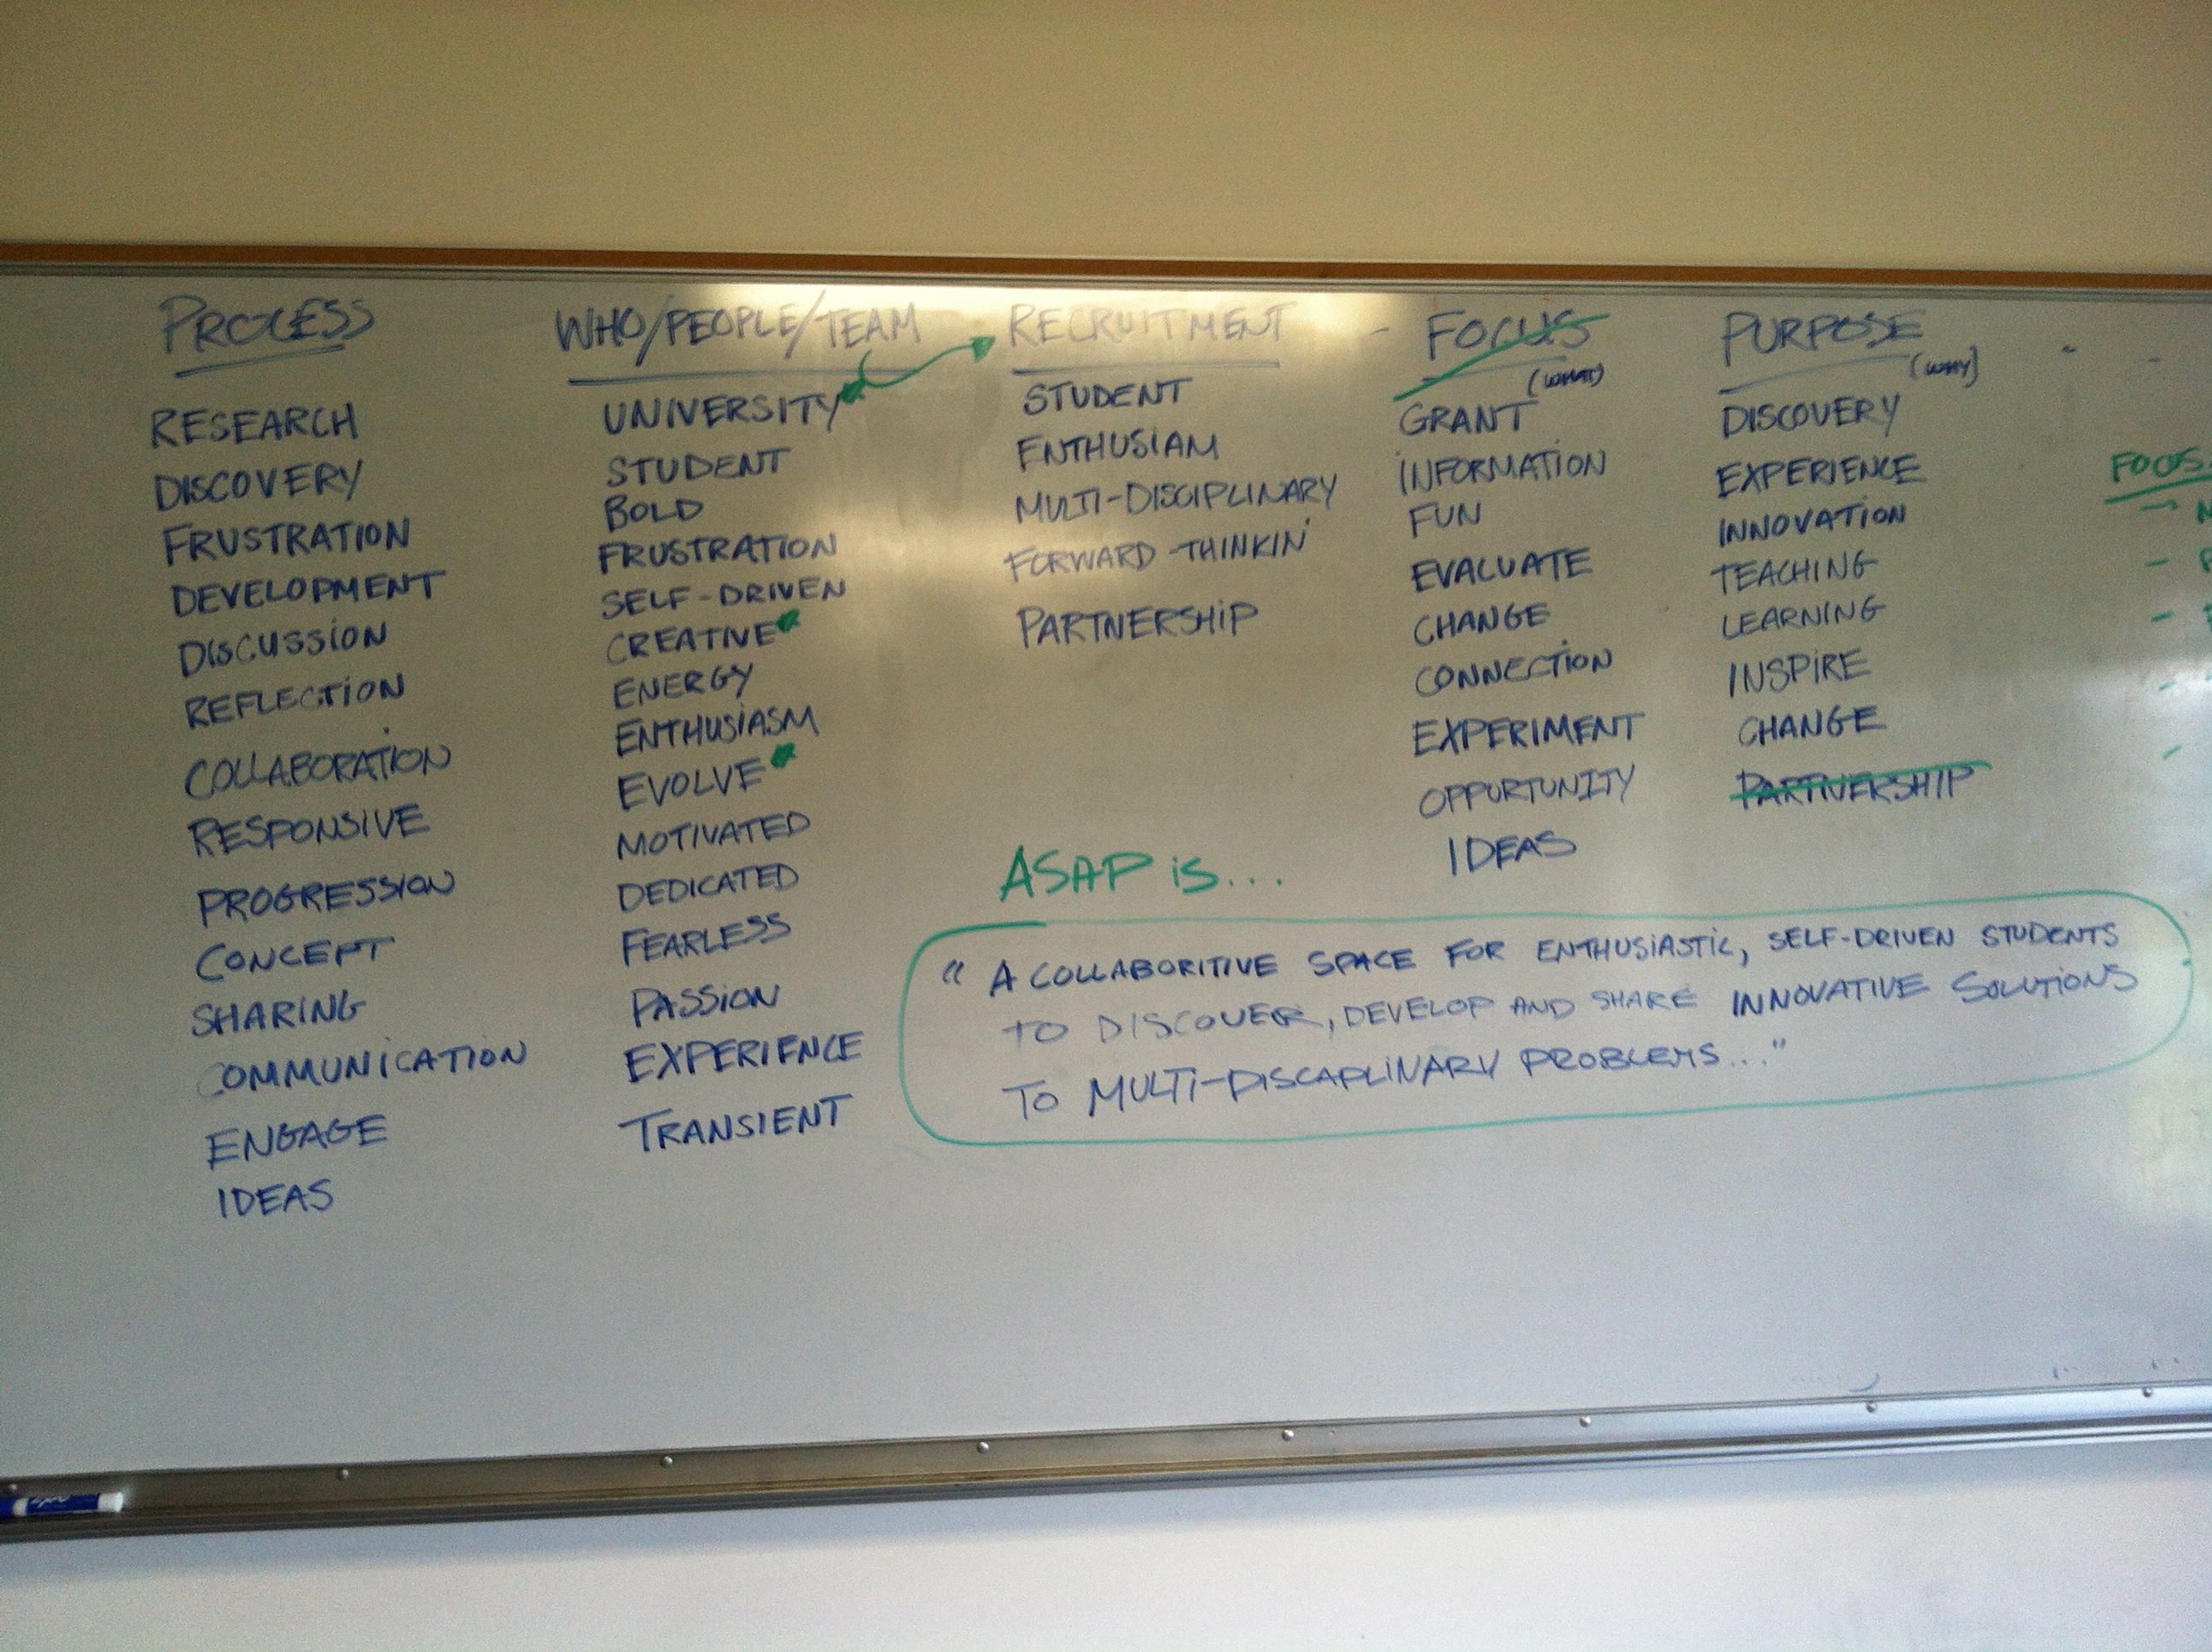 PROCESS
RESEARCH
DISCOVERY
FRUSTRATION
DEVELOPMENT
DISCUSSION
REFLECTION
COLLABORATION
RESPONSIVE
PROGRESSION
CONCEPT
SHARING
COMMUNICATION
ENGAGE
IDEAS
WHO/PEOPLE/TEAM
UNIVERSITY
STUDENT
BOLD
FRUSTRATION
SELF-DRIVEN
CREATIVE
ENERGY
ENTHUSIASM
EVOLVE
MOTIVATED
DEDICATED
FEARLESS
PASSION
EXPERIENCE
TRANSIENT
RECRUITMENT
STUDENT
ENTHUSIAM
MULTI-DISCIPLINARY
FORWARD-THINKIN'
PARTNERSHIP
FOCUS
(WHAT)
GRANT
INFORMATION
FUN
EVALUATE
CHANGE
CONNECTION
EXPERIMENT
OPPURTUNITY
IDEAS
PURPOSE
(WHY)
DISCOVERY
EXPERIENCE
INNOVATION
TEACHING
LEARNING
INSPIRE
CHANGE
PARTNERSHIP
FOCUS
ASAP is...
" A COLLABORITIVE SPACE FOR ENTHUSIASTIC, SELF-DRIVEN STUDENTS
TO DISCOVER, DEVELOP AND SHARE INNOVATIVE SOLUTIONS
TO MULTI-DISCAPLINARY PROBLEMS..."